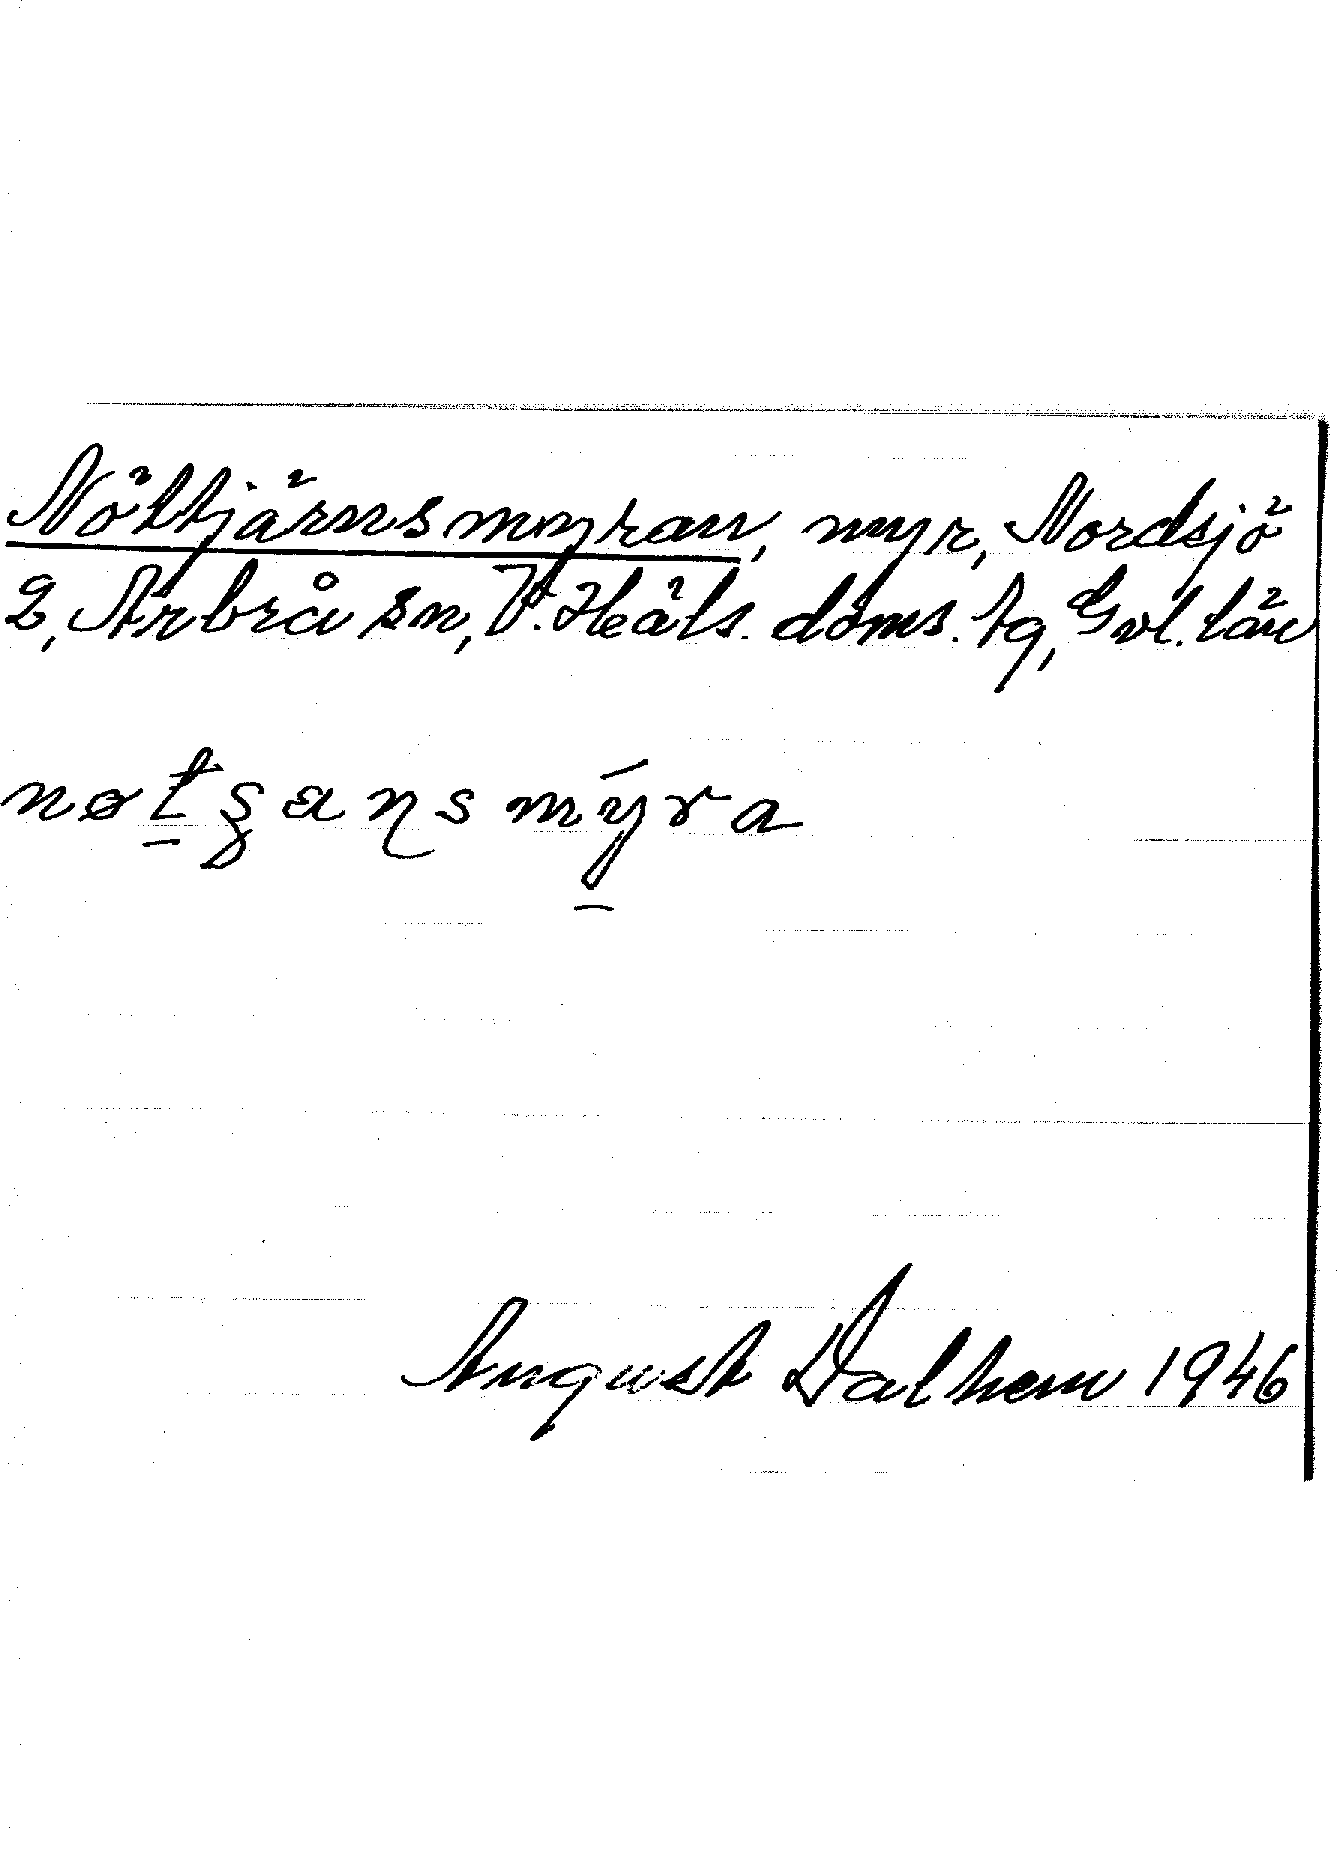 Nöttjärnsmyran, myr, Nordsjö
2, Arbrå sn, V. Häls. doms. tg, Gvl. län
nøt̠ʂaɳsmýra
August Dalhem 1946